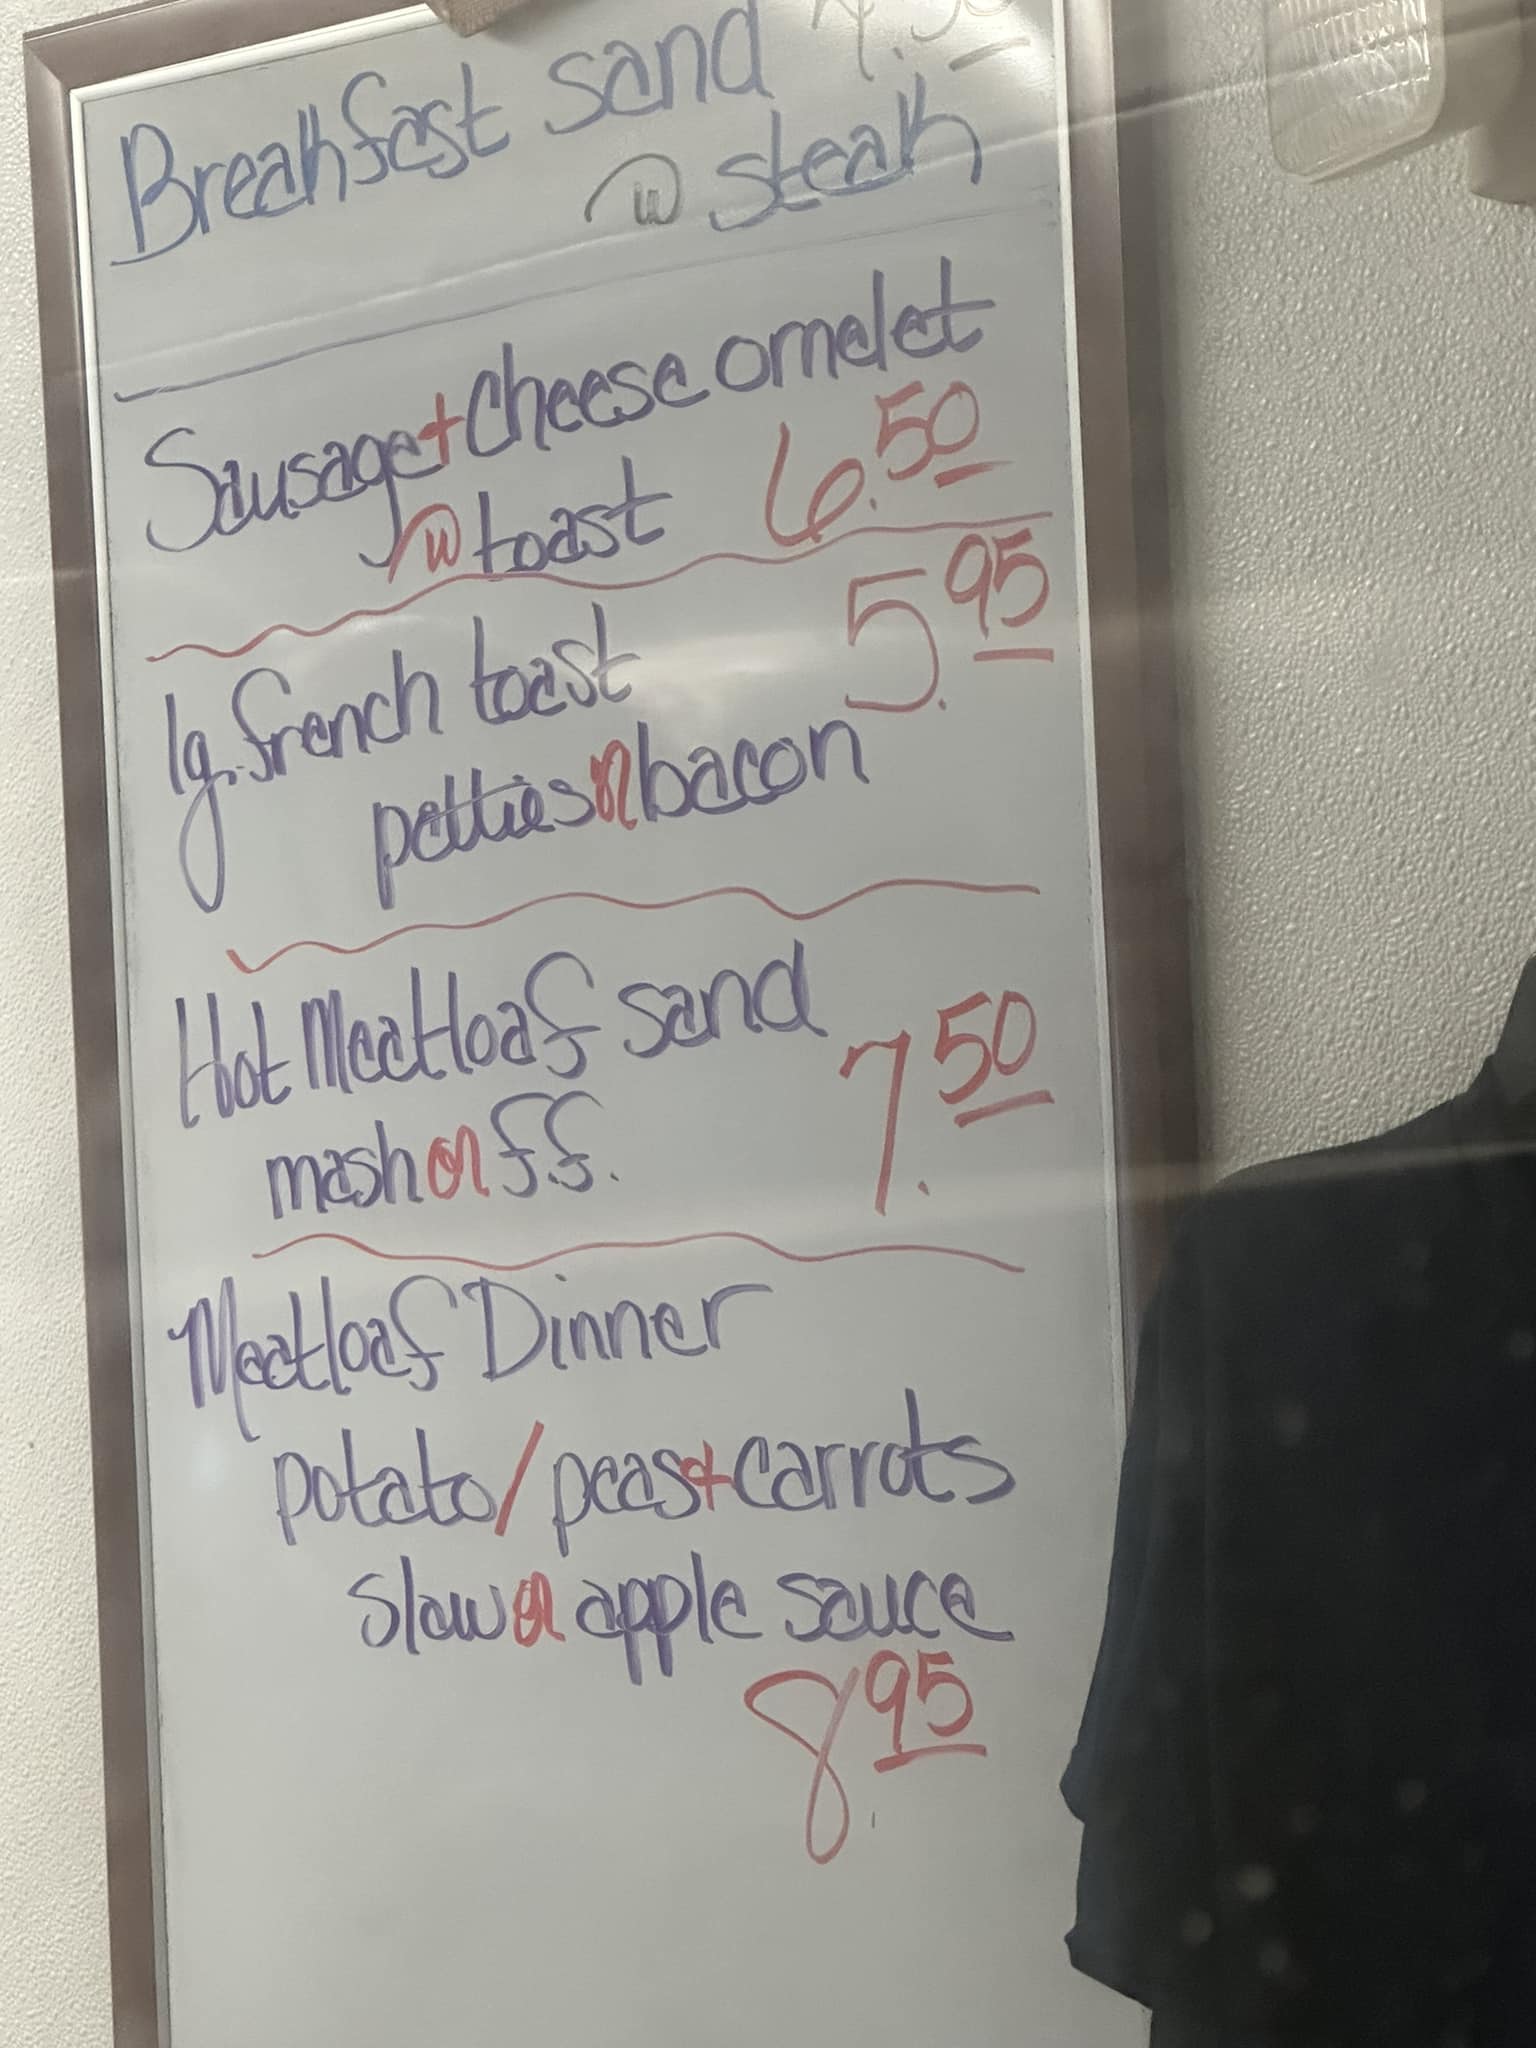 Breakfast sand
w steak
Sausage + Cheese omelet
w toast 6.50
lg. french toast 5.95
patties or bacon
Hot Meatloaf sand
mash or f.f. 7.50
Meatloaf Dinner
potato / peas + carrots
slaw or apple sauce
8.95